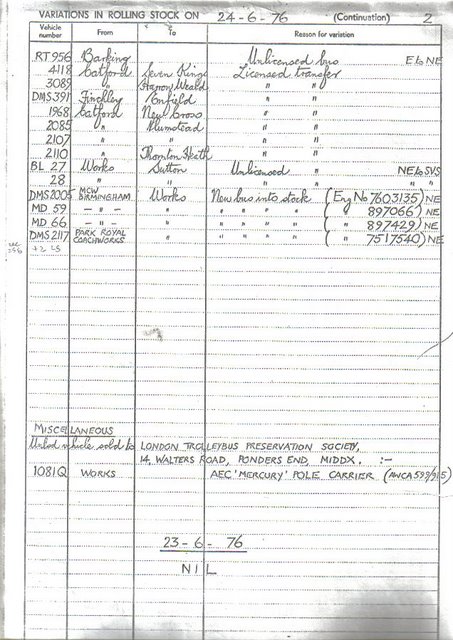 VARIATIONS IN ROLLING STOCK ON 24-6-76 (Continuation) 2
Vehicle number From To Reason for variation
RT 956 Barking Unlicensed bus E to NE
4118 Catford Seven Kings Licensed transfer
3089 " Harrow Weald " "
DMS 391 Finchley Enfield " "
1968 Catford New Cross " "
2085 " Plumstead " "
2107 " " " "
2110 " Thornton Heath " "
BL 27 Works Sutton Unlicensed " NE to SVS
28 " " " " " "
DMS 2005 MCW BIRMINGHAM Works New bus into stock (Eng No 7603135) NE
MD 59 — " — " " " " " " ( " 897066) NE
MD 66 — " — " " " " " " ( " 897429) NE
DMS 2117 PARK ROYAL COACHWORKS " " " " " ( " 7517540) NE
MISCELLANEOUS
Unlsd vehicle sold to LONDON TROLLEYBUS PRESERVATION SOCIETY,
14, WALTERS ROAD, PONDERS END, MIDDX. :-
1081Q WORKS AEC 'MERCURY' POLE CARRIER
23-6-76
NIL